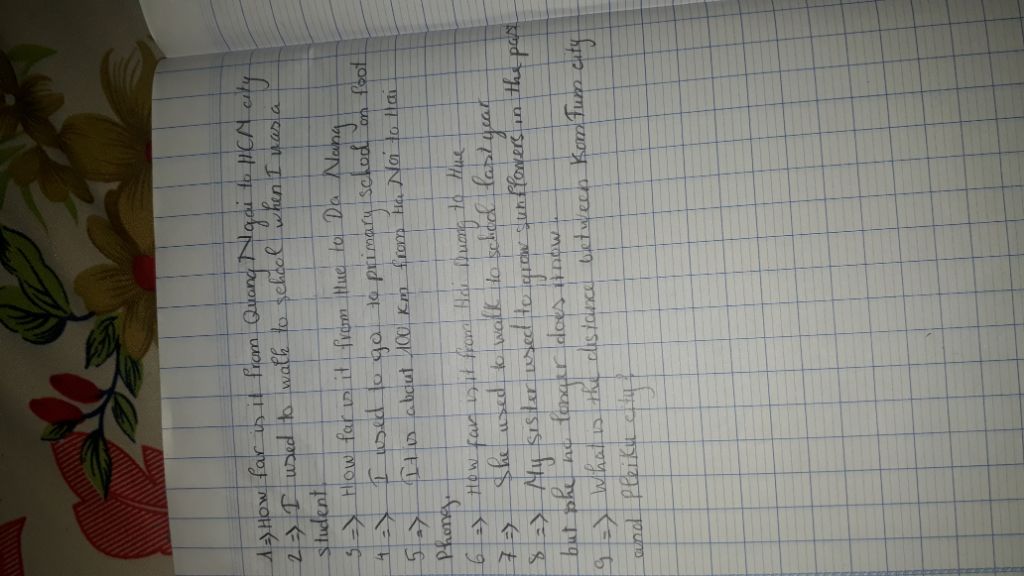 1 => How far is it from Quang Ngai to HCM city
2 => I used to walk to school when I was a
student.
3 => How far is it from Hue to Da Nang
4 => I used to go to primary school on foot
5 => It is about 100 km from Ha Noi to Hai
Phong.
6 => How far is it from Hai Duong to Hue
7 => She used to walk to school last year
8 => My sister used to grow sunflowers in the pas
but she no longer does it now.
9 => What is the distance between Kom Tum city
and Pleiku city?